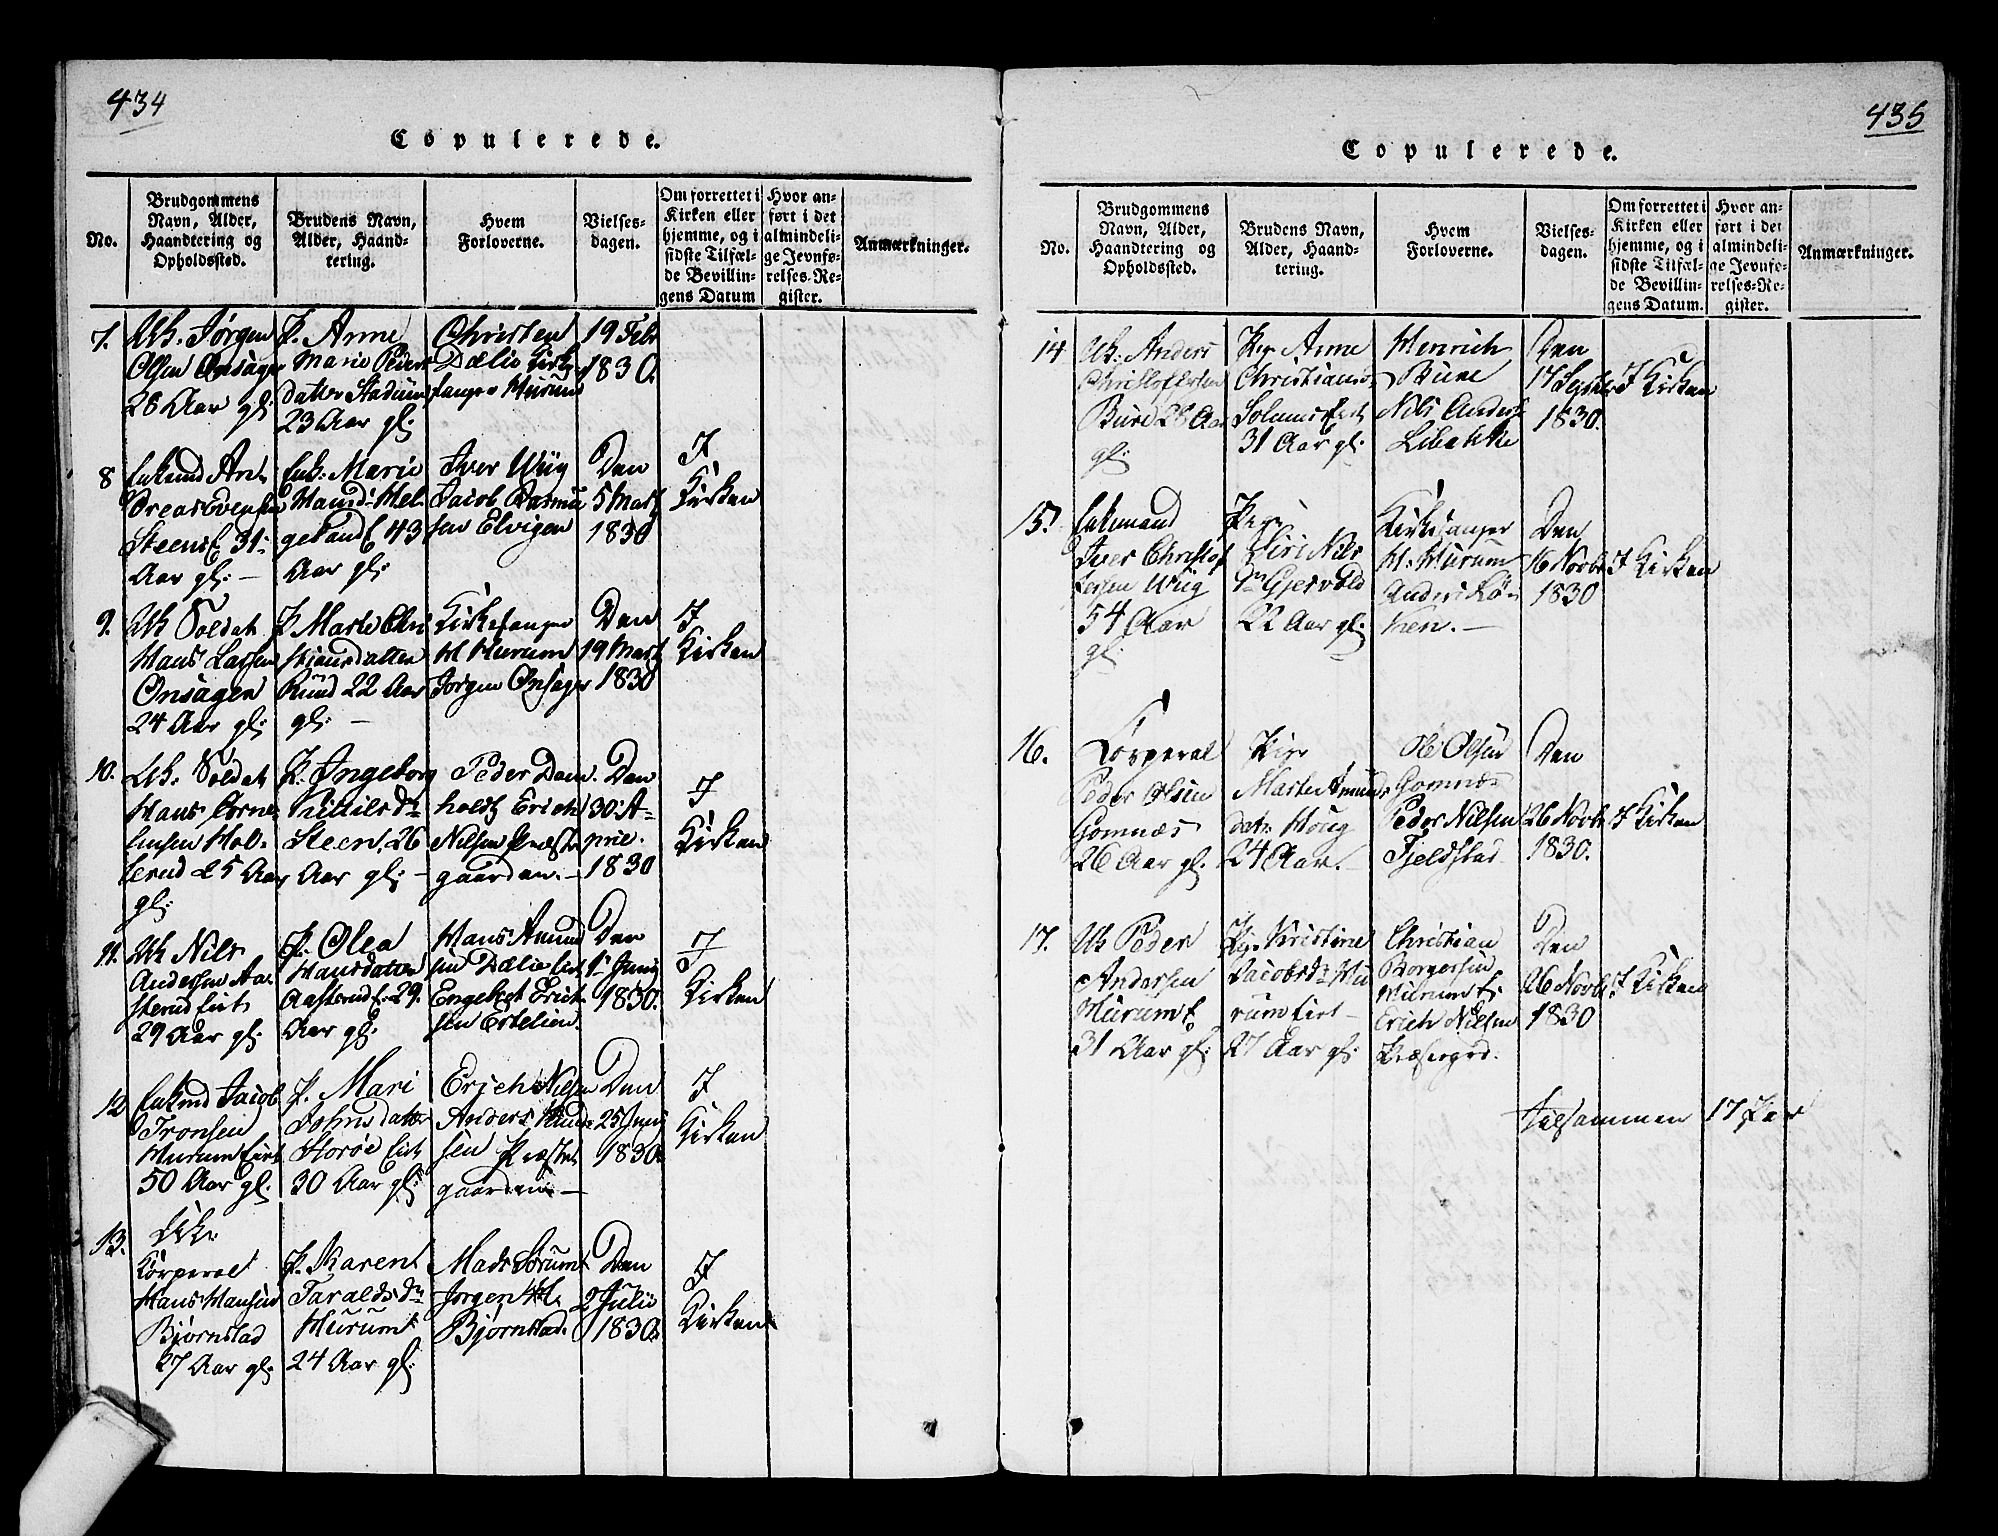 434
Copulerede.
No.
Brudgommens
Navn, Alder,
Haandtering og
Opholdssted.
Brudens Navn,
Alder, Haand-
tering.
Hvem
Forloverne.
Vielses-
dagen.
Om forrettet i
Kirken eller
hjemme, og i
sidste Tilfæl-
de Bevillin-
gens Datum
Hvor an-
ført i det
almindeli-
ge Jevnfø-
relses-Re-
gister.
Anmærkninger.
7.
Uk. Jørgen
Olsen Onsager
28 Aar gl:
P. Anne
Marie Peders
datter
23 Aar gl:
Christen
Dælie Kirke
sanger Murum
19 Febr
1830.
8
Enkemd An-
dreas Svensen
Steens 31
Aar gl: —
Enk: Marie
43
Aar gl:
Iver Wiig
Jacob Rasmu
sen Elvigen
Den
5 Mart
1830
I
Kirken
9.
Uk Soldat
Hans Larsen
Onsagen
24 Aar gl:
P Marte Chri
stiansdatter
Rund 22 Aar
gl: —
Kirkesanger
H Murum
Jørgen Onsager
Den
19 Mart
1830
I
Kirken
10.
Uk. Soldat
Hans Corne
liusen Hol-
lerud 25 Aar
gl:
P. Ingeborg
Kittilsdr
Steen 26
Aar gl: —
Peder Dam.
holdt Erich
Nilsen Præste
gaarden. —
Den
30 A-
pril.
1830
I
Kirken
11.
Uk Nils
Andersen Aa-
sterud
29 Aar gl:
P. Olea
Hansdatter
Aasterud 29.
Aar gl:
Hans Amund
sen Dælie
Engebret Erich
sen Ertelien.
Den
1 Juni
1830.
I
Kirken
12
Enkemd Jacob
Tronsen
Murum
50 Aar gl.
P. Mari
Johnsdatter
Storøe
30 Aar gl:
Erich Nilsen
Anders Knud
sen Præste
gaarden —
Den
25 Juni
1830.
I
Kirken
13.
Korporal
Hans Hansen
Bjørnstad
27 Aar gl:
P. Karen
Taraldsdr
Murum
24 Aar gl:
Mads Sørum
Jørgen H.
Bjørnstad.
Den
2 Julii
1830.
I
Kirken
435
Copulerede.
No.
Brudgommens
Navn, Alder,
Haandtering og
Opholdssted.
Brudens Navn,
Alder, Haand-
tering.
Hvem
Forloverne.
Vielses-
dagen.
Om forrettet i
Kirken eller
hjemme, og i
sidste Tilfæl-
de Bevillin-
gens Datum.
Hvor an-
ført i det
almindeli-
ge Jevnfø-
relses-Re-
gister.
Anmærkninger.
14
Uk. Anders
Christophersen
Bure 28 Aar
gl:
Pig. Anne
Christians
31 Aar gl:
Henrich
Bure
Nils Anders
Libakke
Den
17 Septbr
1830.
I Kirken
15.
Enkemand
Iver Christof
fersen Wiig
54 Aar
gl:
Pige
Siri Nils
Dr Gjervold
22 Aar gl:
Kirkesanger
H. Murum
Anders Lø-
ken. —
Den
16 Novbr
1830
I Kirken
16.
Korporal
Peder Olsen
Gomnæs
26 Aar gl.
Pige
Marte Amunds
datr. Houg
24 Aar.
Ole Olsen
Gomnæs
Peder Nilsen
Fjeldstad
Den
26 Novbr
1830.
I Kirken
17.
Uk Peder
Andersen
Murum
31 Aar gl:
Pig. Kristine
Jacobsdr Mu
rum
27 Aar gl:
Christian
Borgersen
Murum
Erich Nilsen
Præstegrd.
Den
26 Novbr.
1830
I Kirken
tilsammen 17 Par